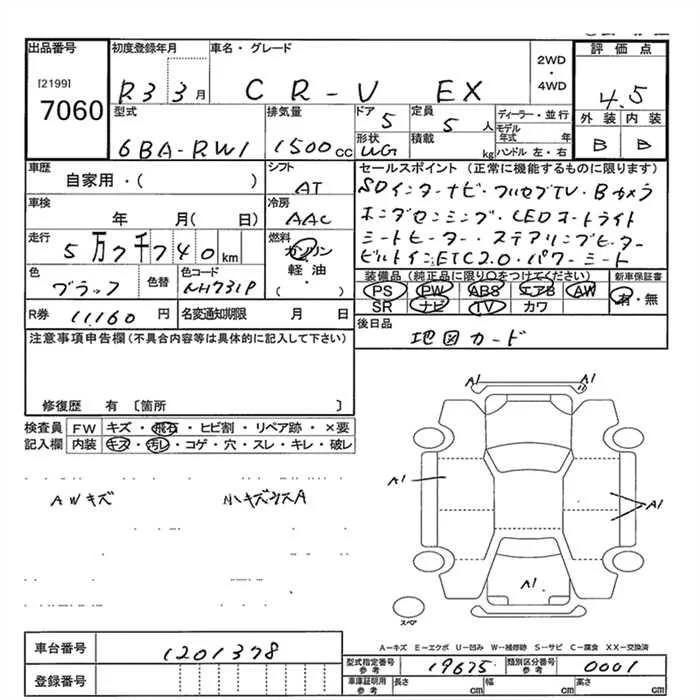 出品番号
[2199]
7060
初度登録年月
R3 3月
車名・グレード
CR-V EX
2WD
・
4WD
評価点
4.5
外装 内装
B B
型式
6BA-RW1
排気量
1500cc
ドア
5
形状
WG
定員
5人
積載
kg
ディーラー・並行
モデル年式 年
ハンドル 左・右
車歴
自家用・( )
シフト
AT
セールスポイント (正常に機能するものに限ります)
SDインターナビ・フルセグTV・Bカメラ
ホンダセンシング・LEDオートライト
シートヒーター・ステアリングヒーター
ビルトインETC2.0・パワーシート
車検
年 月( 日)
冷房
AAC
走行
5万7千740km
燃料
ガソリン
軽油
( )
色
ブラック
色替
色コード
NH731P
装備品 (純正品に限り○をつけてください)
PS PW ABS エアB AW
SR ナビ TV カワ
新車保証書
有・無
R券 11160円
名変通知期限 月 日
後日品
地図カード
注意事項申告欄(不具合内容等は具体的に記入して下さい)
修復歴 有 〔箇所 〕
検査員記入欄
FW キズ・飛石・ヒビ割・リペア跡・×要
内装 キズ・汚レ・コゲ・穴・スレ・キレ・破レ
AWキズ
小キズウスA
A1 A1
A1 A1
A1
スペア
A-キズ E-エクボ U-凹み W-補修跡 S-サビ C-腐食 XX-交換済
車台番号 1201378
登録番号
型式指定番号 参考 19675
類別区分番号 参考 0001
車庫証明用 参考 長さ cm 幅 cm 高さ cm